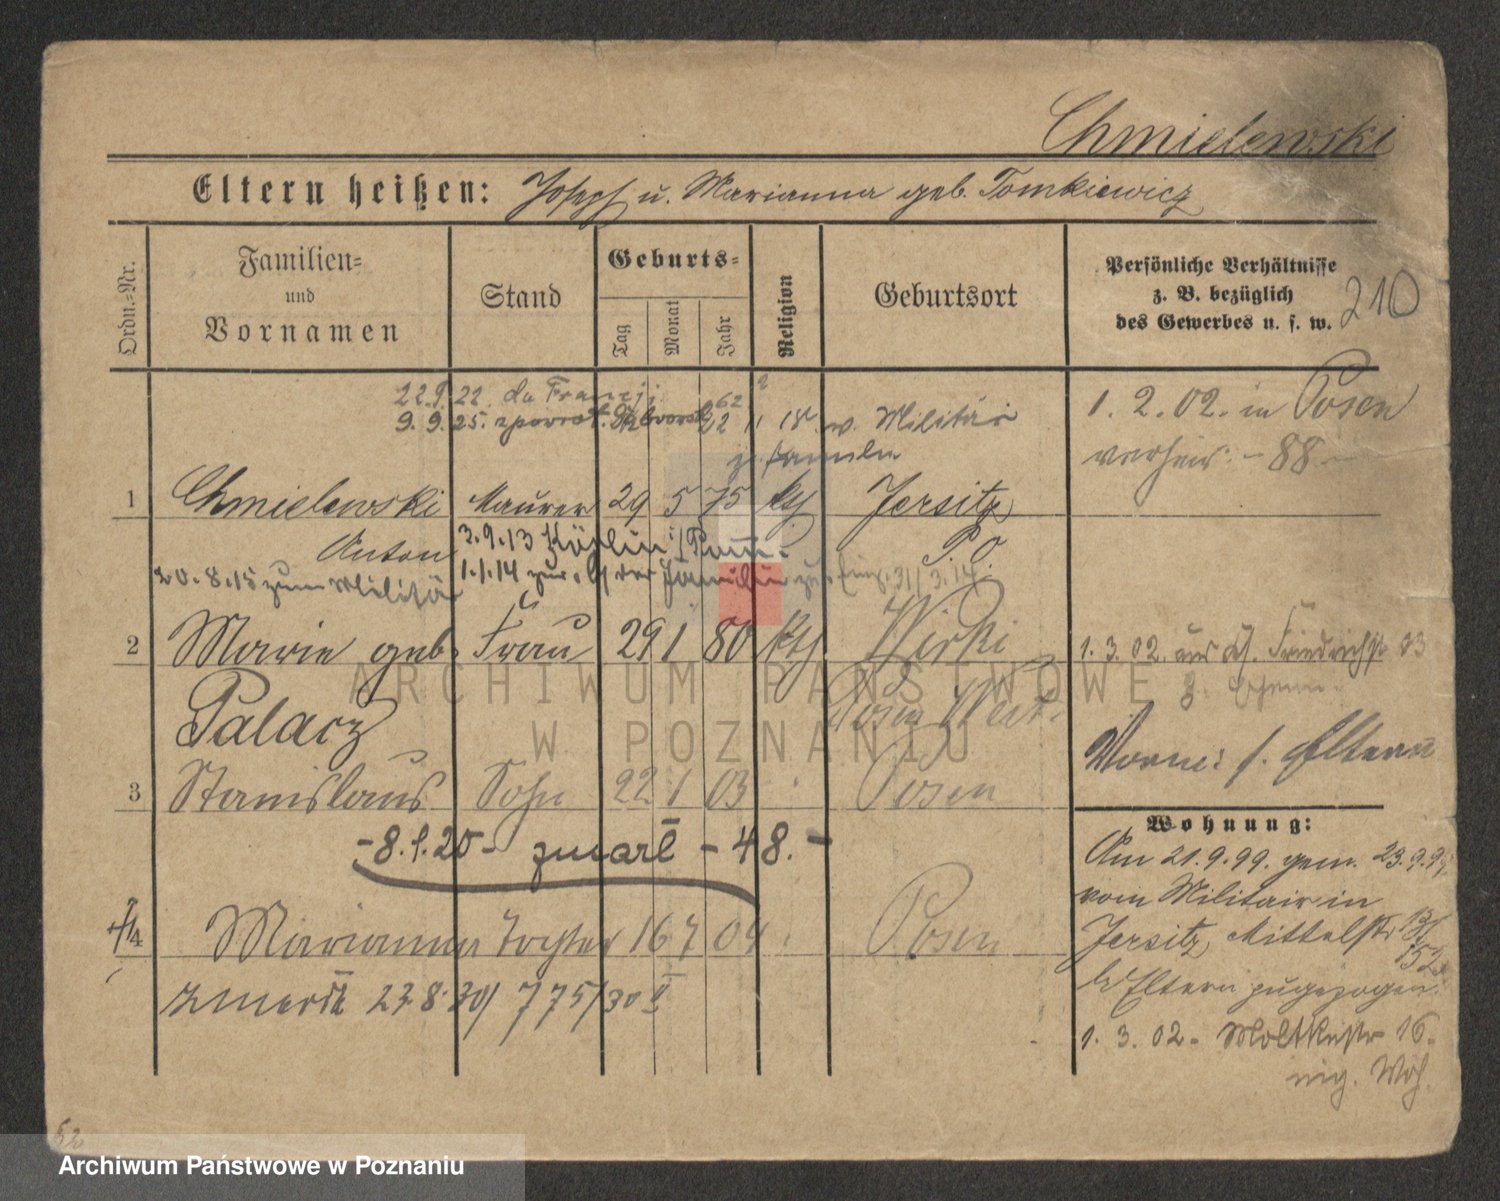 Chmielewski
Eltern heißen: Joseph u. Marianna geb. Tomkiewicz
Ordn.-Nr.
Familien-
und
Vornamen
Stand
Geburts-
Tag
Monat
Jahr
Religion
Geburtsort
Persönliche Verhältnisse
z. B. bezüglich
des Gewerbes u. s. w.
210
22.9.22. do Francji
9.9.25.
18. v. Militär
1. 2. 02. in Posen
verheir. - 88 -
1 Chmielewski Maurer 29 5 75 kth Jersitz
Anton 3.9.13 Köslin i/Pom. P. O.
20.8.15 zum Militär 1.1.14 zur. b/ der Familie 31/3.14
2 Marie geb. Frau 29 1 80 kth Wirki
Palacz
Posen West.
1. 3. 02. aus
Vorne: s. Eltern
3 Stanislaus Sohn 22 1 03 Posen
- 8.1.20 - zmarł - 48. -
Wohnung:
Am 21.9.99. gem. 23.9.99
vom Militair in
Jersitz, Mittelstr. 13/
152
b/ Eltern zugezogen.
1. 3. 02 - Moltkestr 16.
eig. Woh.
4 Marianna Tochter 16 7 04 Posen
zmarła 23.8.30 / 775/30 II
ARCHIWUM PAŃSTWOWE
W POZNANIU
Archiwum Państwowe w Poznaniu